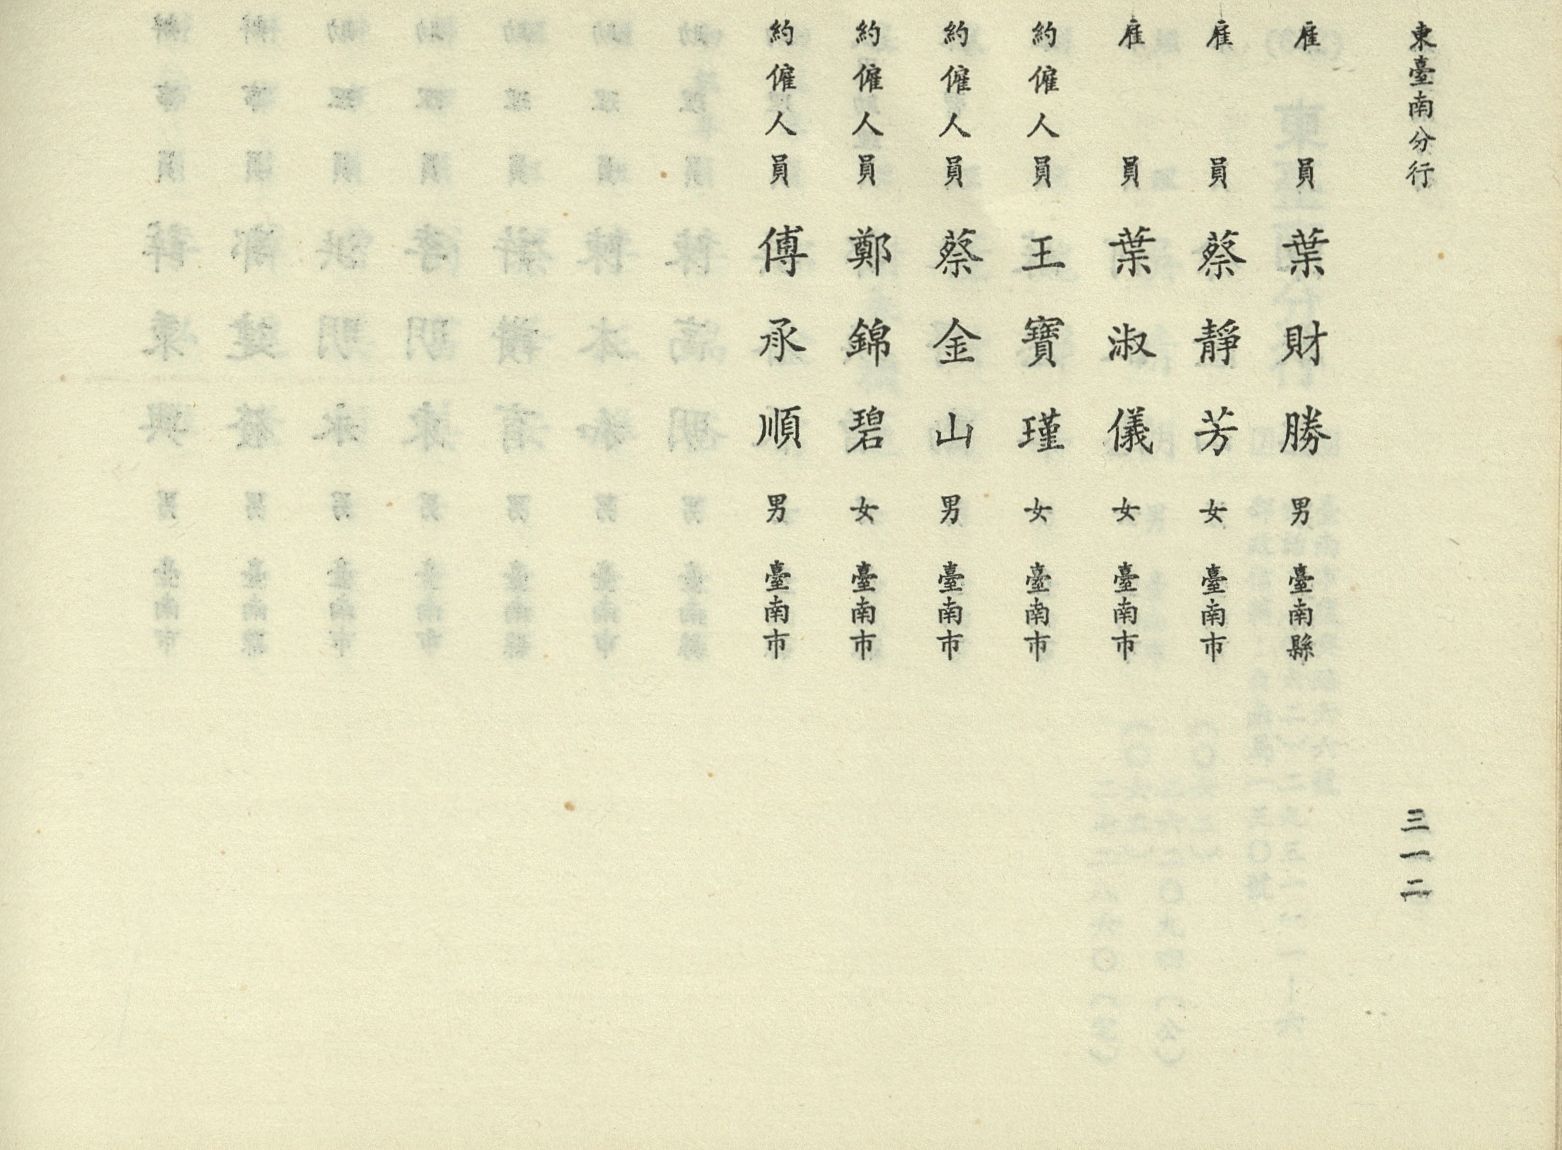 東臺南分行
三一二
雇員 葉財勝 男 臺南縣
雇員 蔡靜芳 女 臺南市
雇員 葉淑儀 女 臺南市
約僱人員 王寶瑾 女 臺南市
約僱人員 蔡金山 男 臺南市
約僱人員 鄭錦碧 女 臺南市
約僱人員 傅承順 男 臺南市